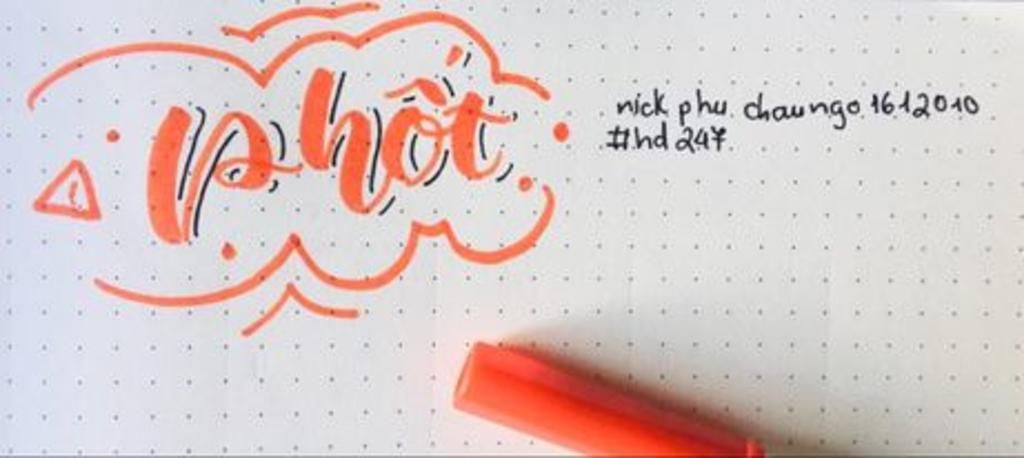 phốt
nick phu. chaungo 1612010
#hd 247